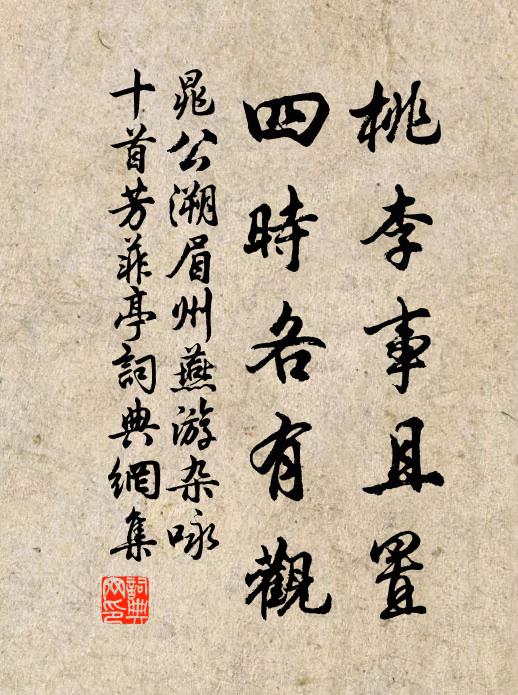 桃李事且置
四時各有觀
晁公溯眉州燕游杂咏
十首芳菲亭詞典網集
詞典网印